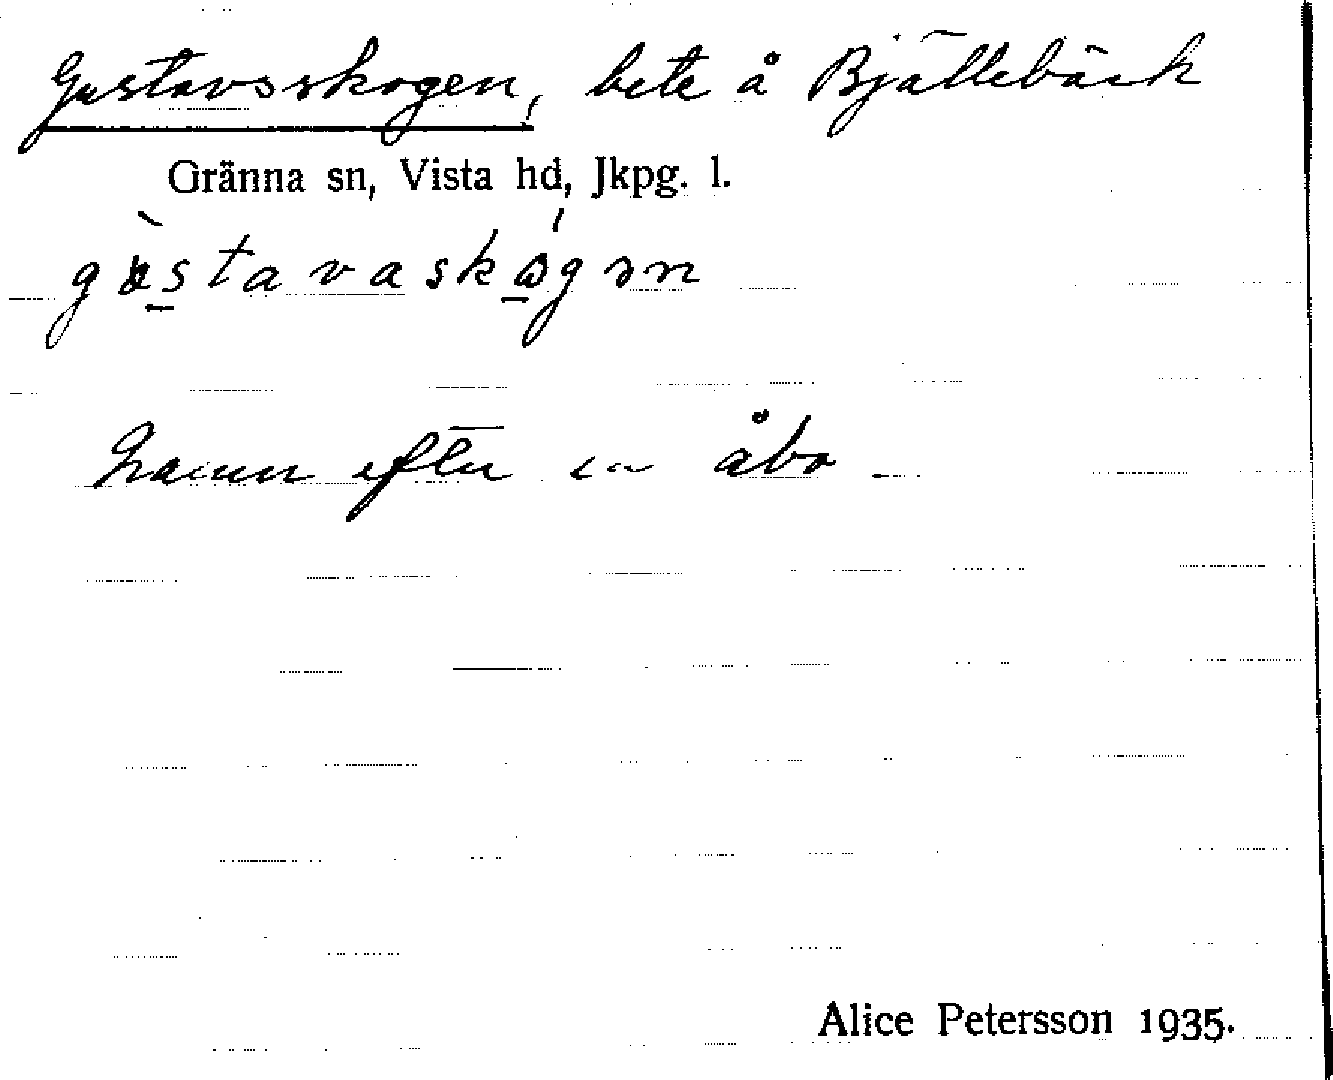 Gustavsskogen, bete å Bjällebäck
Gränna sn, Vista hd, Jkpg. l.
gùstavaskógən
Namn efter en åbo
Alice Petersson 1935.